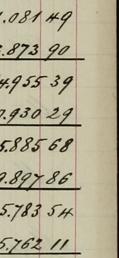 .081 49
.873 90
4.955 39
7.930 29
5.885 68
9.897 86
5.783 54
5.762 11